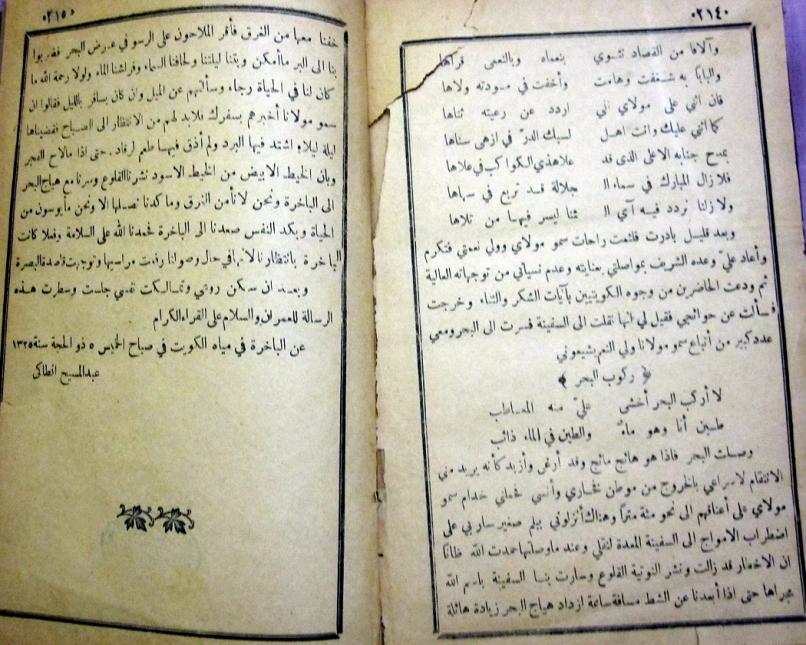 ٠٢١٤٠
وآلاها من القصاد تثوي بنعماه وبالنعمى قراها
والبابًا به شغفت وهامت وأخفت في مودته ولاها
فان اثني على مولاي اني اردد عن رعيته ثناها
كما اثني عليك وانت اهل لسبك الدرّ في ازهى سناها
بمدح جنابه الاعلى الذى قد علا هذي الكواكب في علاها
فلا زال المبارك في سماء ال جلالة قد تربع في سماها
ولا زلنا نردد فيه آي ال ثنا ليسر فيها من تلاها
وبعد قليل بادرت فلثمت راحات سمو مولاي وولي نعمتي فتكرم
وأعاد عليّ وعده الشريف بمواصلتي بعنايته وعدم نسياني من توجهاته العالية
ثم ودعت الحاضرين من وجوه الكويتيين بآيات الشكر والثناء وخرجت
فسألت عن حوائجي فقيل لي انها نقلت الى السفينة فسرت الى البحر ومعي
عدد كبير من أتباع سمو مولانا ولي النعم يشيعوني
﴿ ركوب البحر ﴾
لا أركب البحر أخشى عليّ منه المعاطب
طين أنا وهو ماء والطين في الماء ذائب
وصلت البحر فاذا هو هائج مائج وقد أرغى وأزبد كأنه يريد مني
الانتقام لاسراعي بالخروج من موطن فخاري وأنسي فحملني خدام سمو
مولاي على أعناقهم الى نحو مئة مترًا وهناك أنزلوني ببلم صغير سار بي على
اضطراب الامواج الى السفينة المعدة لنقلي وعند ما وصلتها حمدت الله ظانًا
ان الاخطار قد زالت ونشر النوتية القلوع وسارت بنا السفينة باسم الله
مجراها حتى اذا أبعدنا عن الشط مسافة ساعة ازداد هياج البحر زيادة هائلة
٠٢١٥٠
خفنا معها من الغرق فأقر الملاحون على الرسو في عرض البحر فضربوا
بنا الى البر ما أمكن وبتنا ليلتنا ولحافنا السماء وفراشنا الماء ولولا رحمة الله ما
كان لنا في الحياة رجاء وسألتهم عن الميل وان كان يسافر بالليل فقالوا ان
سمو مولانا أخبرهم بسفرك فلا بد لهم من الانتظار الى الصباح فقضيناها
ليلة ليلاء اشتد فيها البرد ولم أذق فيها طعم لرقاد حتى اذا ما لاح الفجر
وبان الخيط الابيض من الخيط الاسود نشرنا القلوع وسرنا مع هياج البحر
الى الباخرة ونحن لا نأمن الغرق وما كدنا نصلها الا ونحن مأيوسون من
الحياة وبكد النفس صعدنا الى الباخرة فحمدنا الله على السلامة وفعلا كانت
الباخرة بانتظارنا لانها في حال وصولنا رفعت مراسيها وتوجهت قاصدة البصرة
وبعد ان سكن روعي وتمالكت نفسي جلست وسطرت هذه
الرسالة للعمران والسلام على القراء الكرام
عن الباخرة في مياه الكويت في صباح الخميس ٥ ذو الحجة سنة ١٣٢٥
عبد المسيح انطاكي